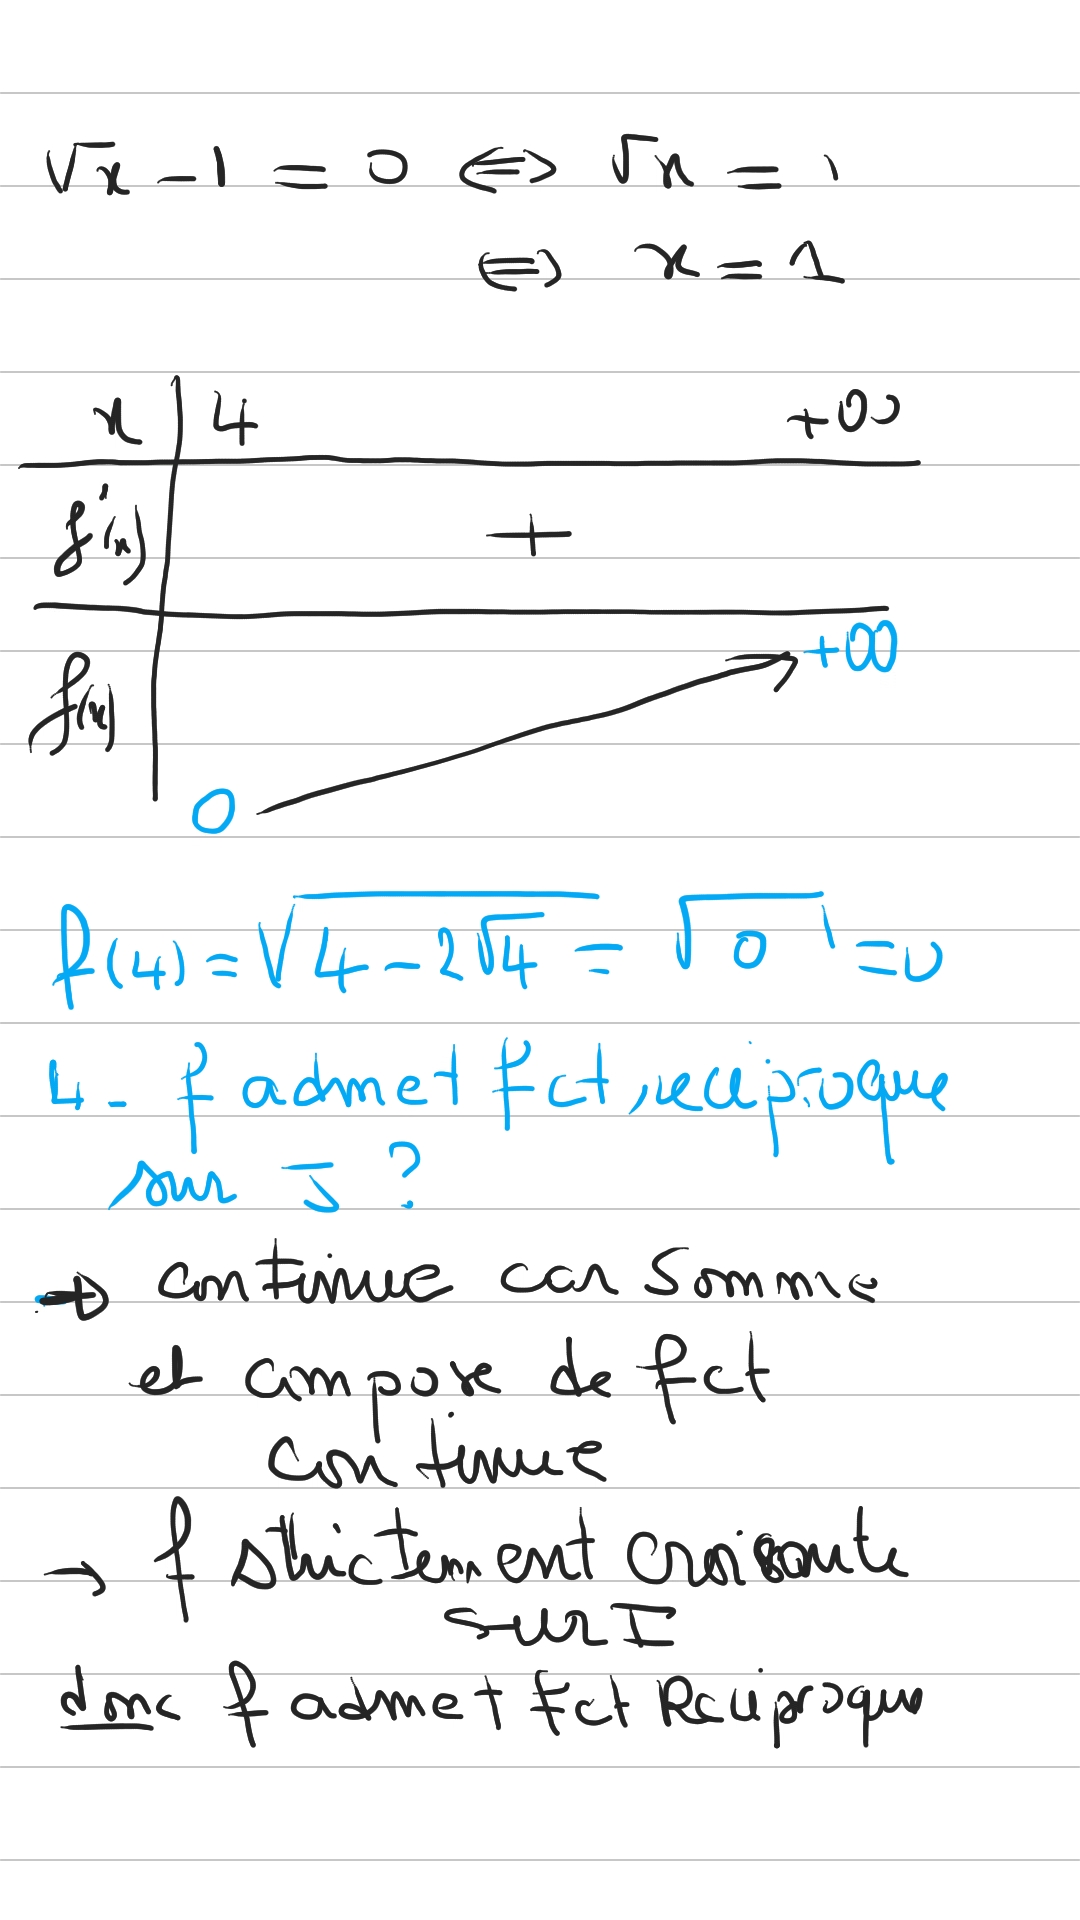 √x - 1 = 0 ⇔ √x = 1
⇔ x = 1
x 4 +∞
f'(x) +
f(x) +∞
0
f(4) = √(4 - 2√4) = √0 = 0
4 - f admet fct réciproque
sur J ?
→ continue car somme
et compose de fct
continue
→ f strictement croissante
sur I
donc f admet fct Réciproque